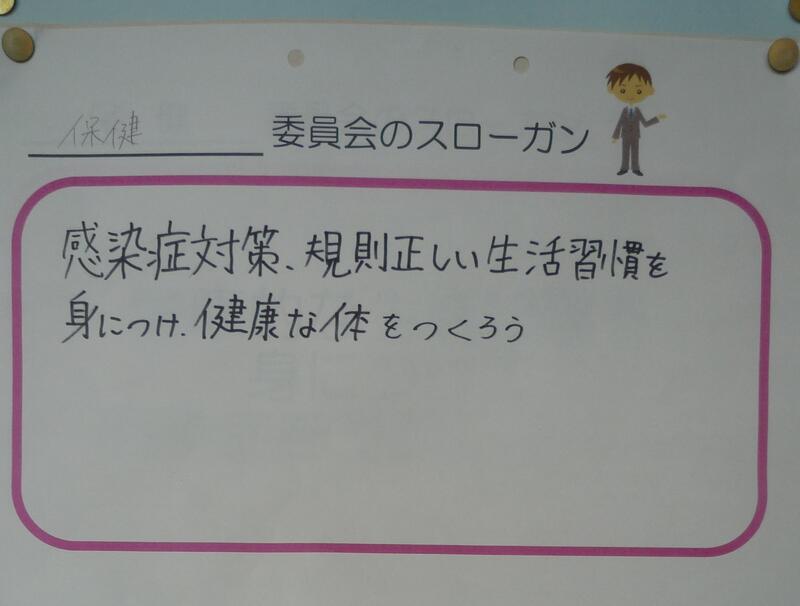 保健 委員会のスローガン
感染症対策、規則正しい生活習慣を
身につけ、健康な体をつくろう